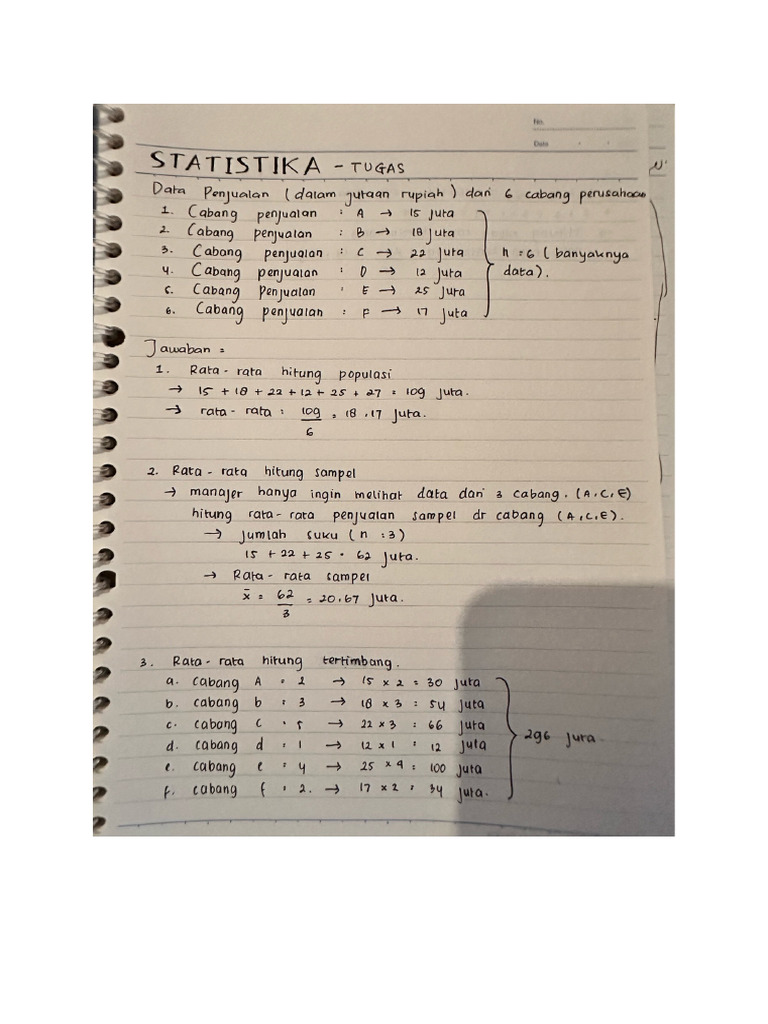 No.
Date
STATISTIKA - TUGAS
Data Penjualan (dalam jutaan rupiah) dari 6 cabang perusahaan
1. Cabang penjualan : A → 15 juta
2. Cabang penjualan : B → 18 juta
3. Cabang penjualan : C → 22 juta
4. Cabang penjualan : D → 12 juta
5. Cabang Penjualan : E → 25 juta
6. Cabang penjualan : F → 17 juta
n = 6 (banyaknya
data).
Jawaban =
1. Rata-rata hitung populasi
→ 15 + 18 + 22 + 12 + 25 + 27 = 109 juta.
→ rata-rata : 109/6 = 18.17 juta.
2. Rata-rata hitung sampel
→ manajer hanya ingin melihat data dari 3 cabang. (A,C,E)
hitung rata-rata penjualan sampel dr cabang (A,C,E).
→ jumlah suku (n =3)
15 + 22 + 25 = 62 juta.
→ Rata-rata sampel
x̄ = 62/3 = 20.67 juta.
3. Rata-rata hitung tertimbang.
a. cabang A = 2 → 15 x 2 = 30 juta
b. cabang b = 3 → 18 x 3 = 54 juta
c. cabang c = 5 → 22 x 3 = 66 juta
d. cabang d = 1 → 12 x 1 = 12 juta
e. cabang e = 4 → 25 x 4 = 100 juta
f. cabang f = 2. → 17 x 2 = 34 juta.
296 juta